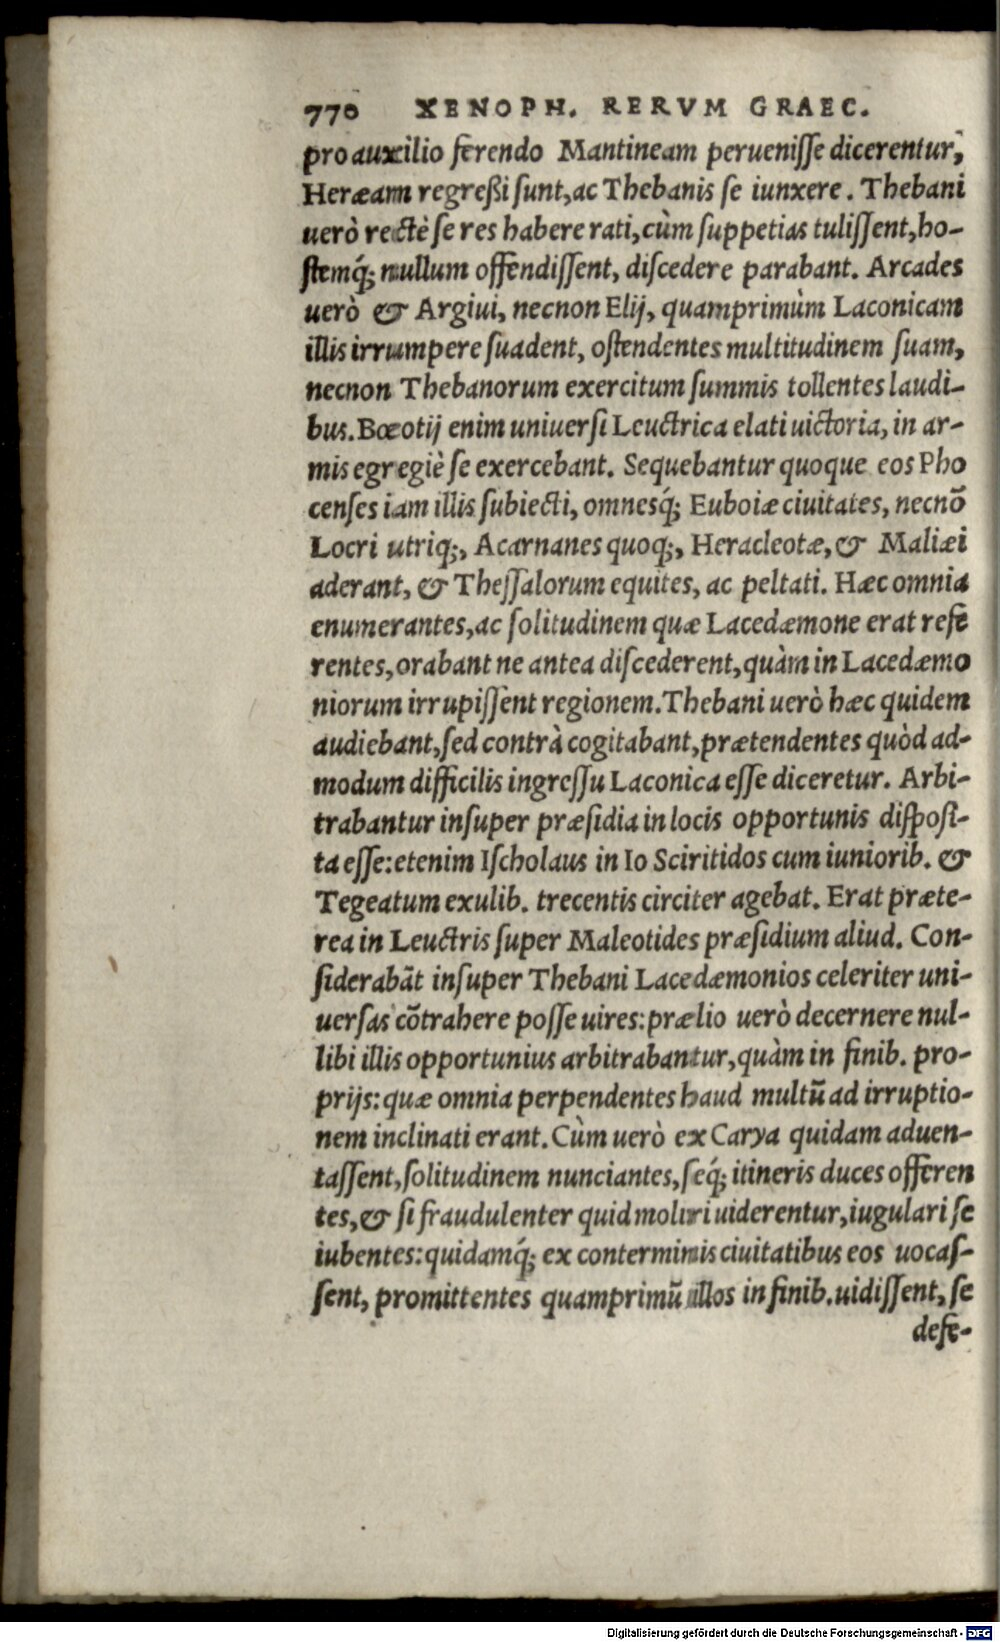 770 XENOPH. RERVM GRAEC.
pro auxilio ferendo Mantineam peruenisse dicerentur,
Heræam regreßi sunt, ac Thebanis se iunxere. Thebani
uerò rectè se res habere rati, cùm suppetias tulissent, ho-
stemq́; nullum offendissent, discedere parabant. Arcades
uerò & Argiui, necnon Elij, quamprimùm Laconicam
illis irrumpere suadent, ostendentes multitudinem suam,
necnon Thebanorum exercitum summis tollentes laudi-
bus. Bœotij enim uniuersi Leuctrica elati uictoria, in ar-
mis egregiè se exercebant. Sequebantur quoque eos Pho
censes iam illis subiecti, omnesq́; Euboiæ ciuitates, necnõ
Locri utriq;, Acarnanes quoq;, Heracleotæ, & Maliæi
aderant, & Thessalorum equites, ac peltati. Hæc omnia
enumerantes, ac solitudinem quæ Lacedæmone erat refe
rentes, orabant ne antea discederent, quàm in Lacedæmo
niorum irrupissent regionem. Thebani uerò hæc quidem
audiebant, sed contrà cogitabant, prætendentes quòd ad-
modum difficilis ingressu Laconica esse diceretur. Arbi-
trabantur insuper præsidia in locis opportunis disposi-
ta esse: etenim Ischolaus in Io Sciritidos cum iuniorib. &
Tegeatum exulib. trecentis circiter agebat. Erat præte-
rea in Leuctris super Maleotides præsidium aliud. Con-
siderabãt insuper Thebani Lacedæmonios celeriter uni-
uersas cõtrahere posse uires: prælio uerò decernere nul-
libi illis opportunius arbitrabantur, quàm in finib. pro-
prijs: quæ omnia perpendentes haud multũ ad irruptio-
nem inclinati erant. Cùm uerò ex Carya quidam aduen-
tassent, solitudinem nunciantes, seq́; itineris duces offeren
tes, & si fraudulenter quid moliri uiderentur, iugulari se
iubentes: quidamq́; ex conterminis ciuitatibus eos uocas-
sent, promittentes quamprimũ illos in finib. uidissent, se
defe-
Digitalisierung gefördert durch die Deutsche Forschungsgemeinschaft - DFG